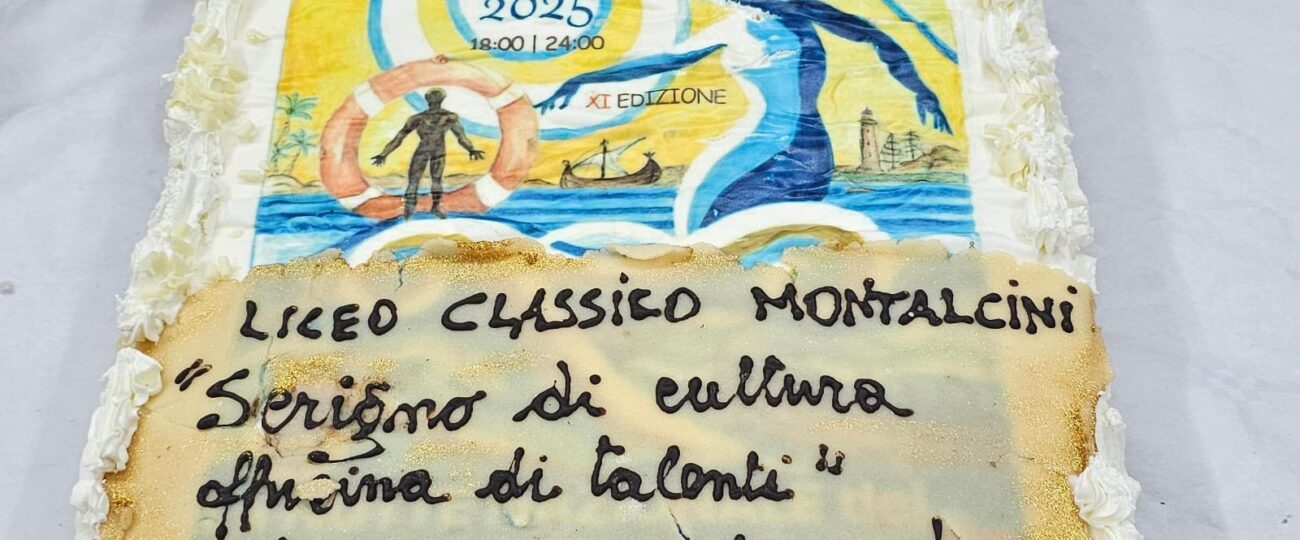 2025
18:00 | 24:00
XI EDIZIONE
LICEO CLASSICO MONTALCINI
"Scrigno di cultura
officina di talenti"